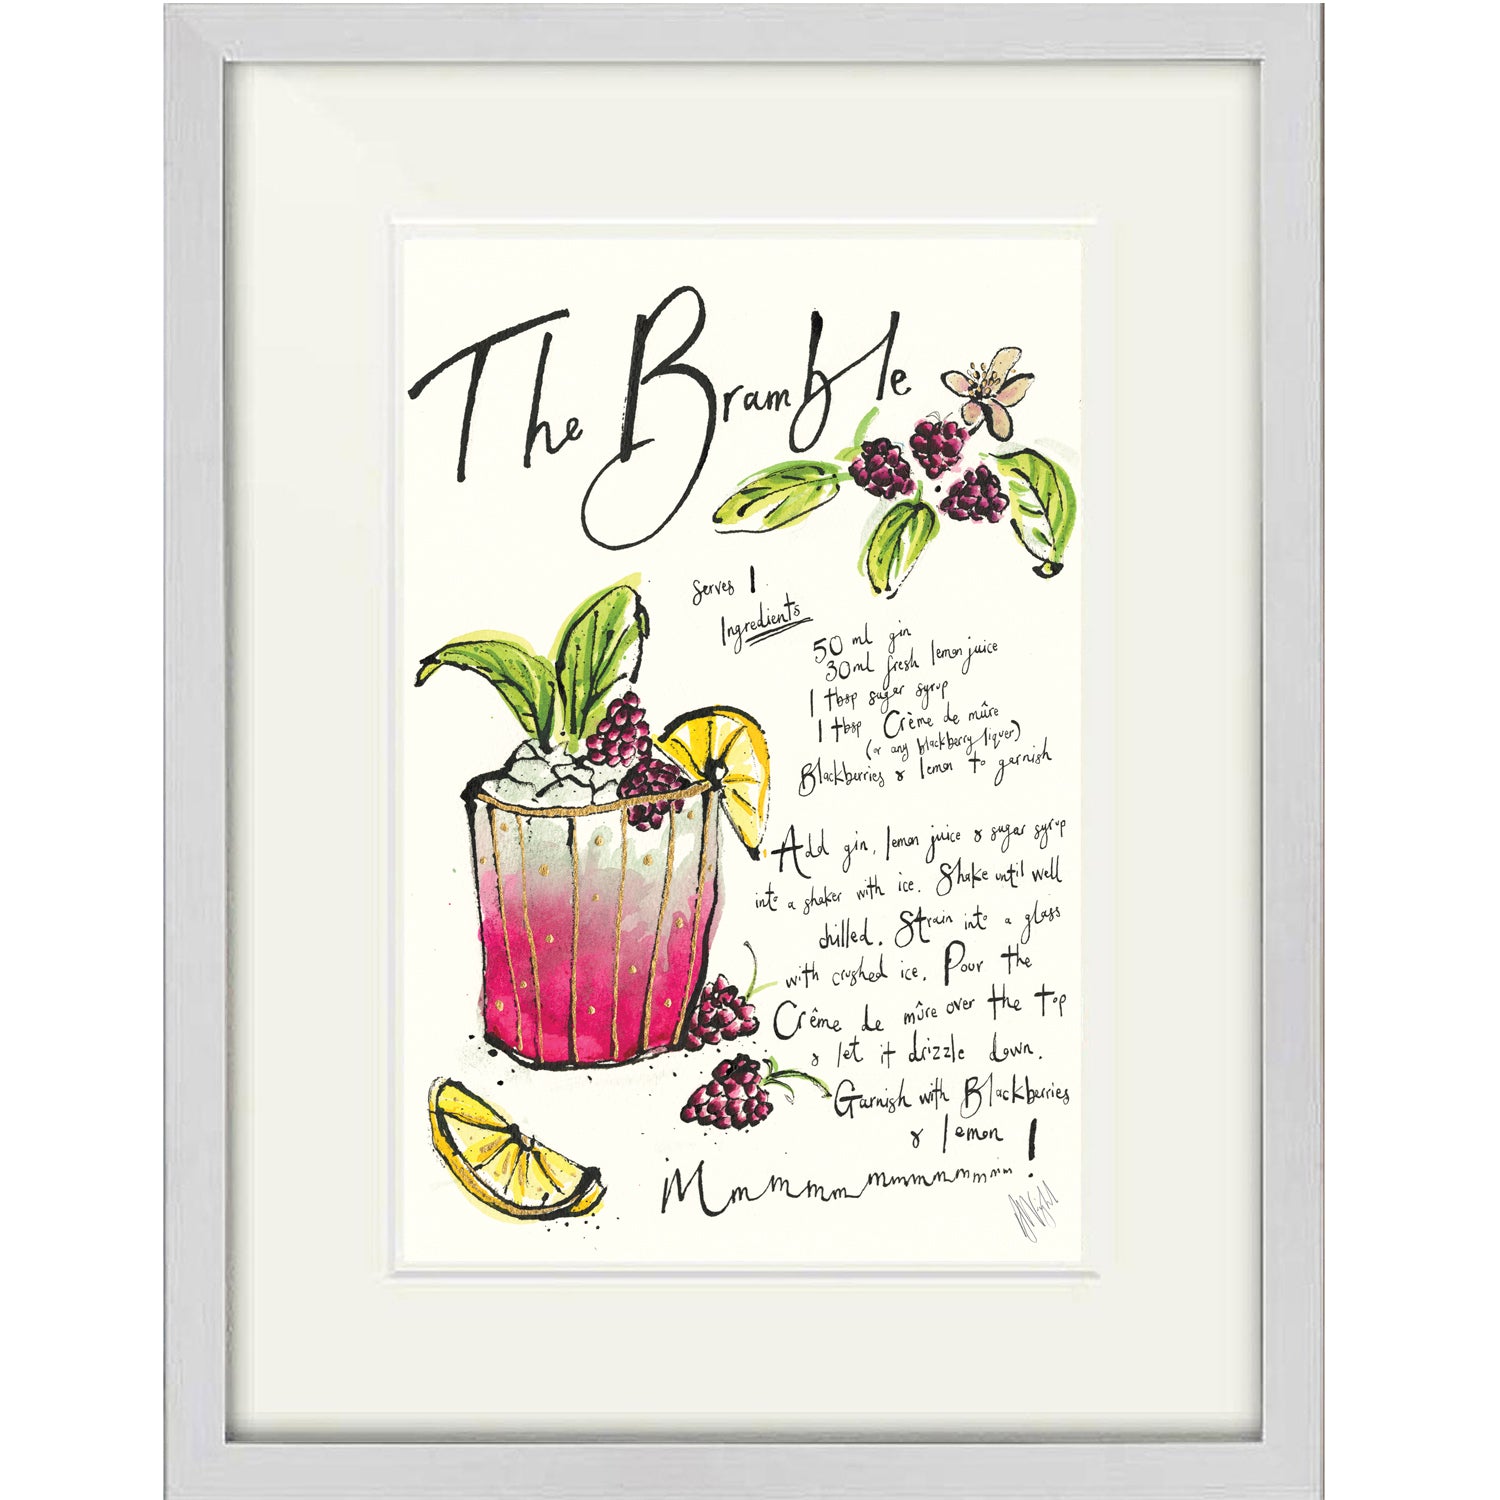 The Bramble
Serves 1
Ingredients
50 ml gin
30ml fresh lemon juice
1 tbsp sugar syrup
1 tbsp Crème de mûre
(or any blackberry liquer)
Blackberries & lemon to garnish
Add gin, lemon juice & sugar syrup
into a shaker with ice. Shake until well
chilled. Strain into a glass
with crushed ice. Pour the
Crême de mûre over the top
& let it drizzle down.
Garnish with Blackberries
& lemon
Mmmmmmmmmmmm!